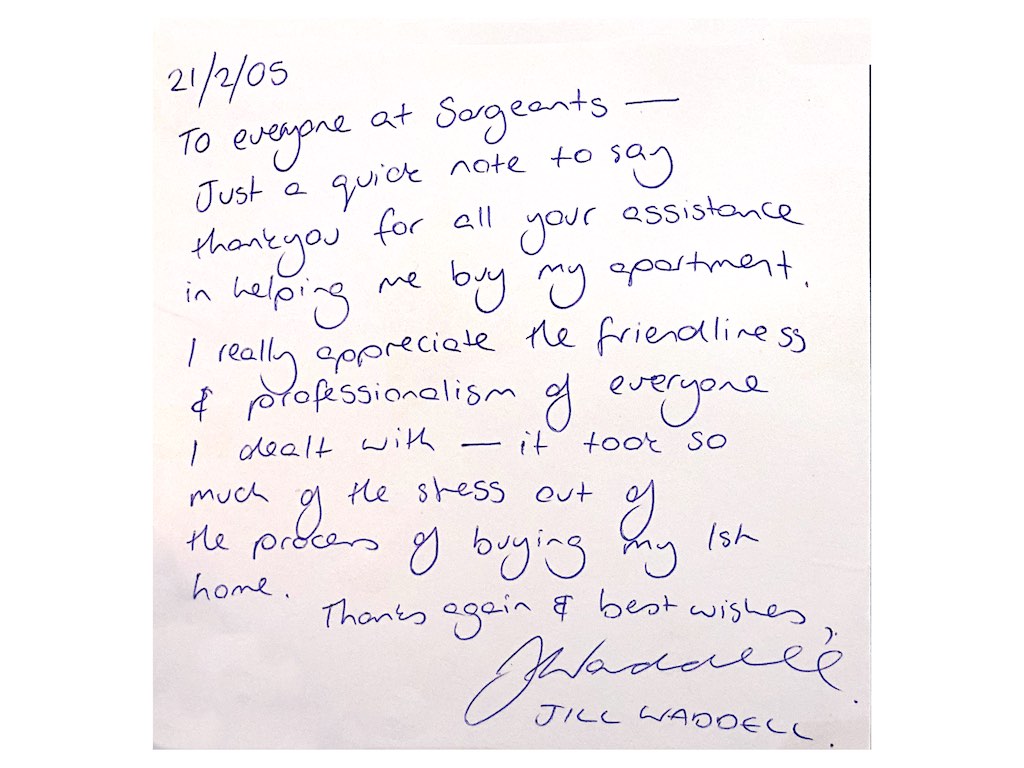 21/2/05
To everyone at Sargeants —
Just a quick note to say
thankyou for all your assistance
in helping me buy my apartment.
I really appreciate the friendliness
& professionalism of everyone
I dealt with — it took so
much of the stress out of
the process of buying my 1st
home.
Thanks again & best wishes,
JWaddell
JILL WADDELL.